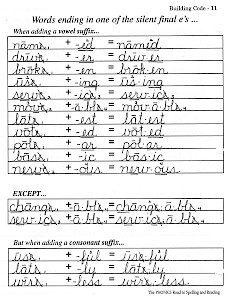 Building Code - 11
Words ending in one of the silent final e's ...
When adding a vowel suffix...
name + -ed = named
drive + -er = driver
broke + -en = broken
use + -ing = using
serve + -ice = service
move + -able = movable
late + -est = latest
vote + -ed = voted
pole + -ar = polar
base + -ic = basic
nerve + -ous = nervous
EXCEPT...
change + -able = changeable
service + -able = serviceable
But when adding a consonant suffix...
use + -ful = useful
late + -ly = lately
wire + -less = wireless
The PHONICS Road to Spelling and Reading